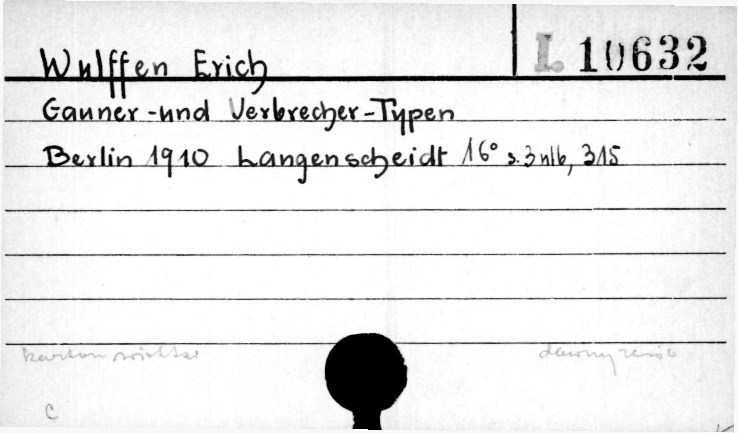 L 10632
Wulffen Erich
Gauner-und Verbrecher-Typen
Berlin 1910 Langenscheidt 16° s. 3 nlb, 315
dawny zasób
c